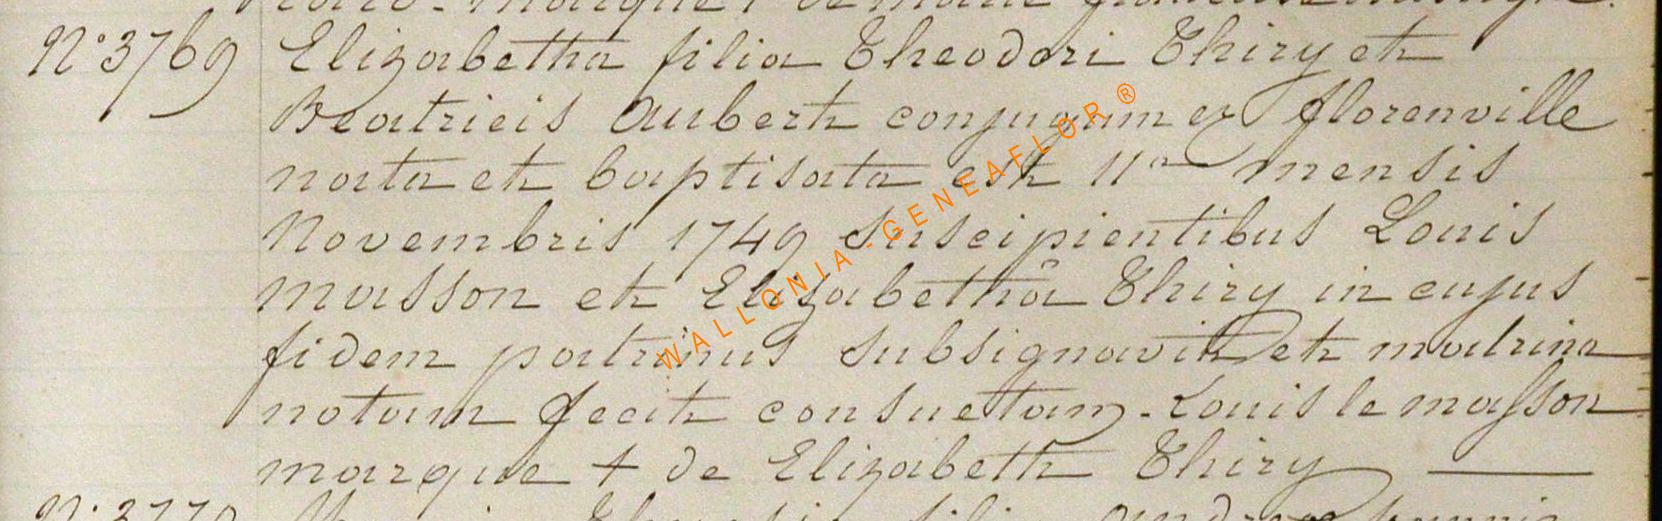 N° 3769 Elizabetha filia Theodori Thiry et
Beatricis Aubert conjugum ex florenville
nata et baptisata est 11a mensis
Novembris 1749 suscipientibus Louis
masson et Elizabethâ Thiry in cujus
fidem patrinus subsignavit et matrina
notam fecit consuetam. Louis le masson
marque + de Elizabeth Thiry
N° 3770 filia
WALLONIA-GENEAFLOR ®